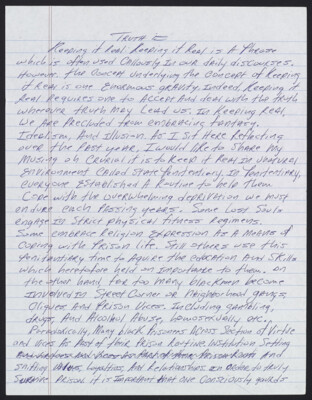 Truth =
Keeping it Real Keeping it Real is A Phrase
which is often used Callously in our daily discourses.
However the Concept underlying the Concept of Keeping
it Real is one Enormous gravity. Indeed, Keeping it
Real Requires one to Accept And deal with the truth
wherever truth may Lead us. In Keeping Real,
we Are Precluded from embracing Fantasy,
Idealism, And Illusion. As I Sit Here Reflecting
over the Past year, I would like to Share my
Musing oh Crucial it is to Keep it Real in
Environment Called State Penitentiary. In Penitentiary,
everyone Established A Routine to help them
Cope with the Overwhelming deprivation we must
endure each Passing years. Some Lost Souls
engage in Strick Physical Fitness Regiments.
Some embrace Religion Expression As A Means of
Coping with Prison life. Still others use this
Penitentiary time to Aquire the education And Skills
which heretofore held no Importance to them. On
the other hand, far too many blackmen become
involved in Street Corner or Neighborhood gangs,
Cliques And Prison Vices. Including gambling,
drugs, And Alcohol Abuse, homosexuality, etc.
Periodically, Many black Prisoners Section of Virtue
and vices As Part of their Prison Routine. Institution Setting
And
Shifting Loyalties, And Relationships In Order to truly
Survive Prison it is Important that one Consciously guards